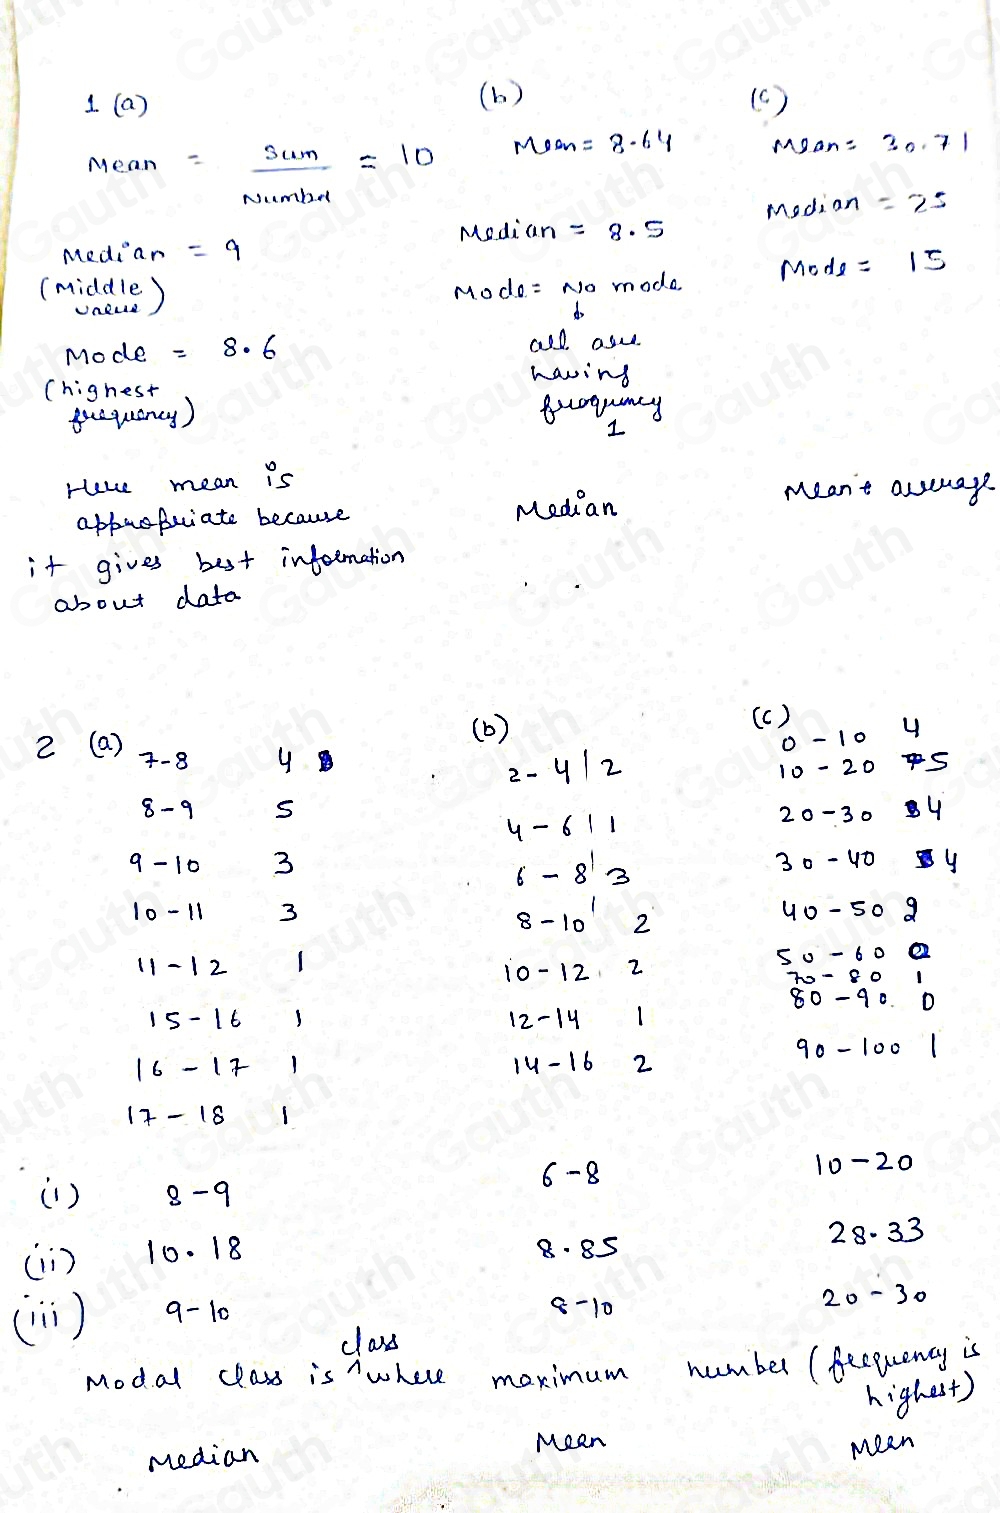 1 (a)
Mean = Sum / Number = 10
Median = 9
(Middle value)
Mode = 8.6
(highest frequency)
Here mean is
appropriate because
it gives best information
about data
(b)
Mean = 8.64
Median = 8.5
Mode = No mode
all are
having
frequency
1
Median
(c)
Mean = 30.71
Median = 25
Mode = 15
Mean average
2 (a)
7-8 4
8-9 5
9-10 3
10-11 3
11-12 1
15-16 1
16-17 1
17-18 1
(b)
2-4 | 2
4-6 | 1
6-8 | 3
8-10 | 2
10-12 2
12-14 1
14-16 2
(c)
0-10 4
10-20 5
20-30 4
30-40 4
40-50 2
50-60
70-80 1
80-90 0
90-100 1
(i) 8-9 6-8 10-20
(ii) 10.18 8.85 28.33
(iii) 9-10 8-10 20-30
Modal class is class where maximum number (frequency is
highest)
Median Mean Mean